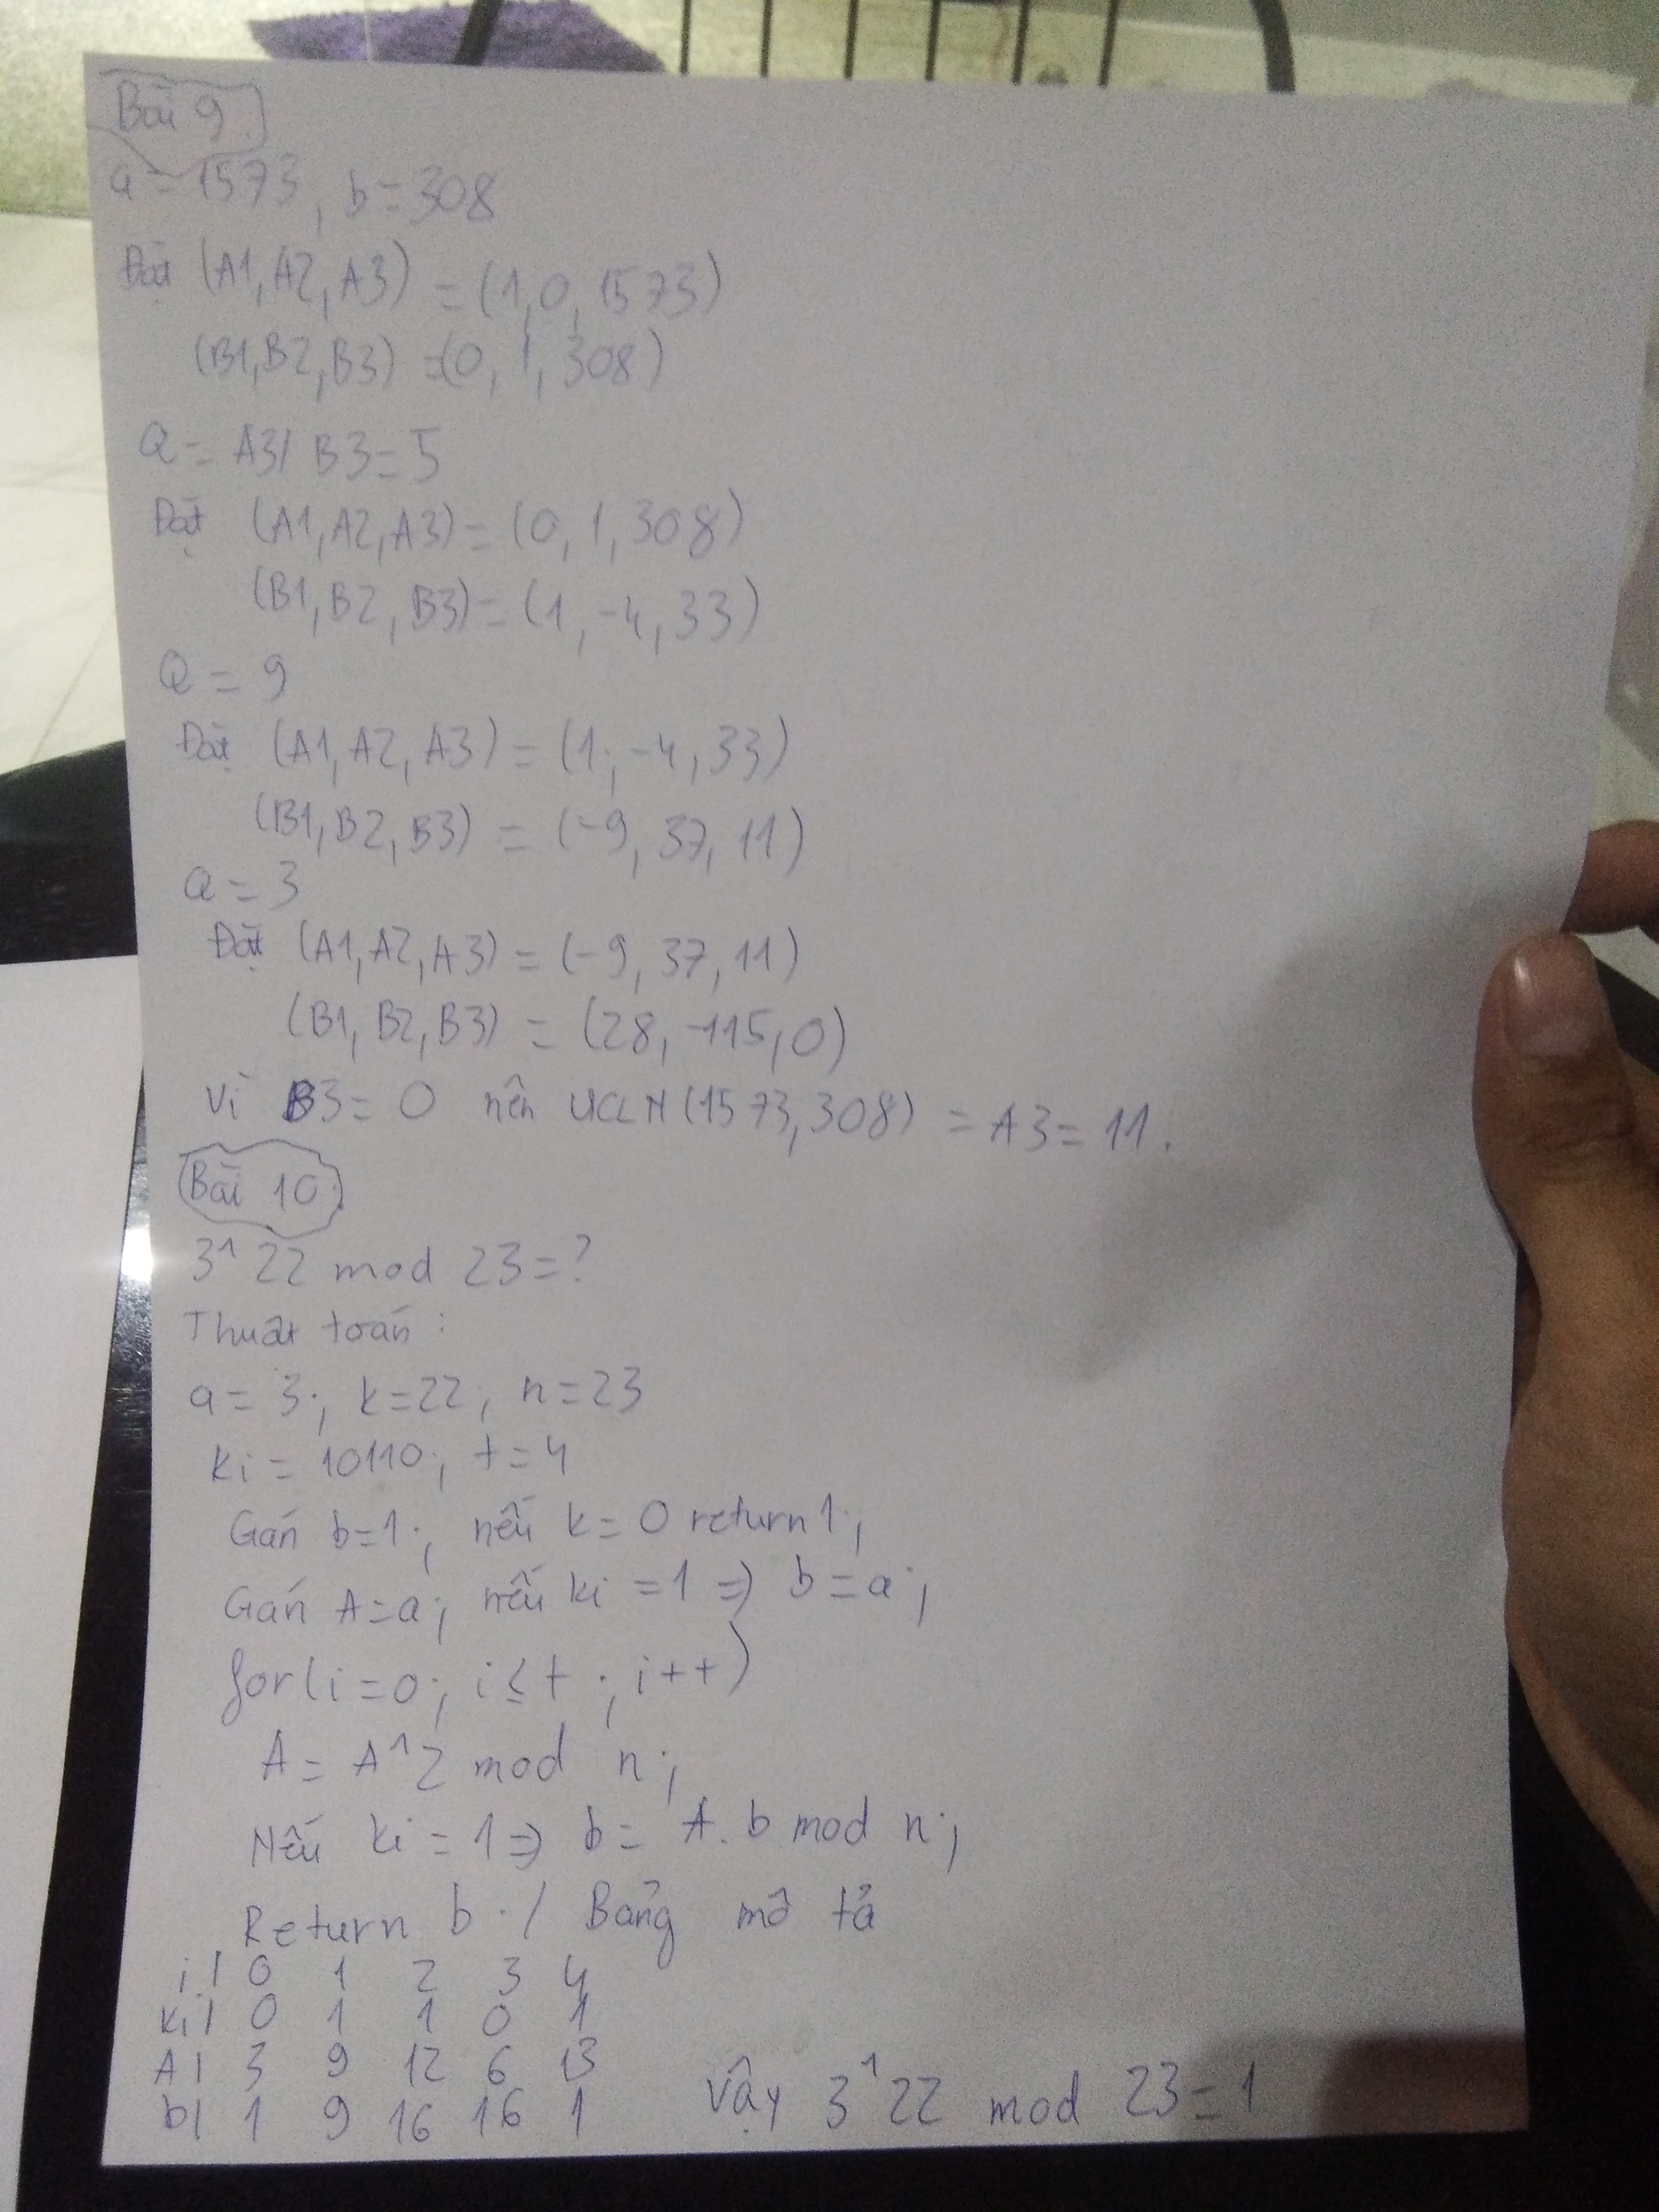 Bài 9
a = 1573, b = 308
Đặt (A1, A2, A3) = (1, 0, 1573)
(B1, B2, B3) = (0, 1, 308)
Q = A3/B3 = 5
Đặt (A1, A2, A3) = (0, 1, 308)
(B1, B2, B3) = (1, -4, 33)
Q = 9
Đặt (A1, A2, A3) = (1; -4, 33)
(B1, B2, B3) = (-9, 37, 11)
Q = 3
Đặt (A1, A2, A3) = (-9, 37, 11)
(B1, B2, B3) = (28, -115, 0)
Vì B3 = 0 nên UCLN(1573, 308) = A3 = 11.
Bài 10
3^22 mod 23 = ?
Thuật toán:
a = 3; k = 22; n = 23
ki = 10110; t = 4
Gán b = 1; nếu k = 0 return 1;
Gán A = a; nếu ki = 1 => b = a;
for(i = 0; i ≤ t; i++)
A = A^2 mod n;
Nếu ki = 1 => b = A.b mod n;
Return b./ Bảng mô tả
i | 0 1 2 3 4
ki | 0 1 1 0 1
A | 3 9 12 6 13
b | 1 9 16 16 1 Vậy 3^22 mod 23 = 1